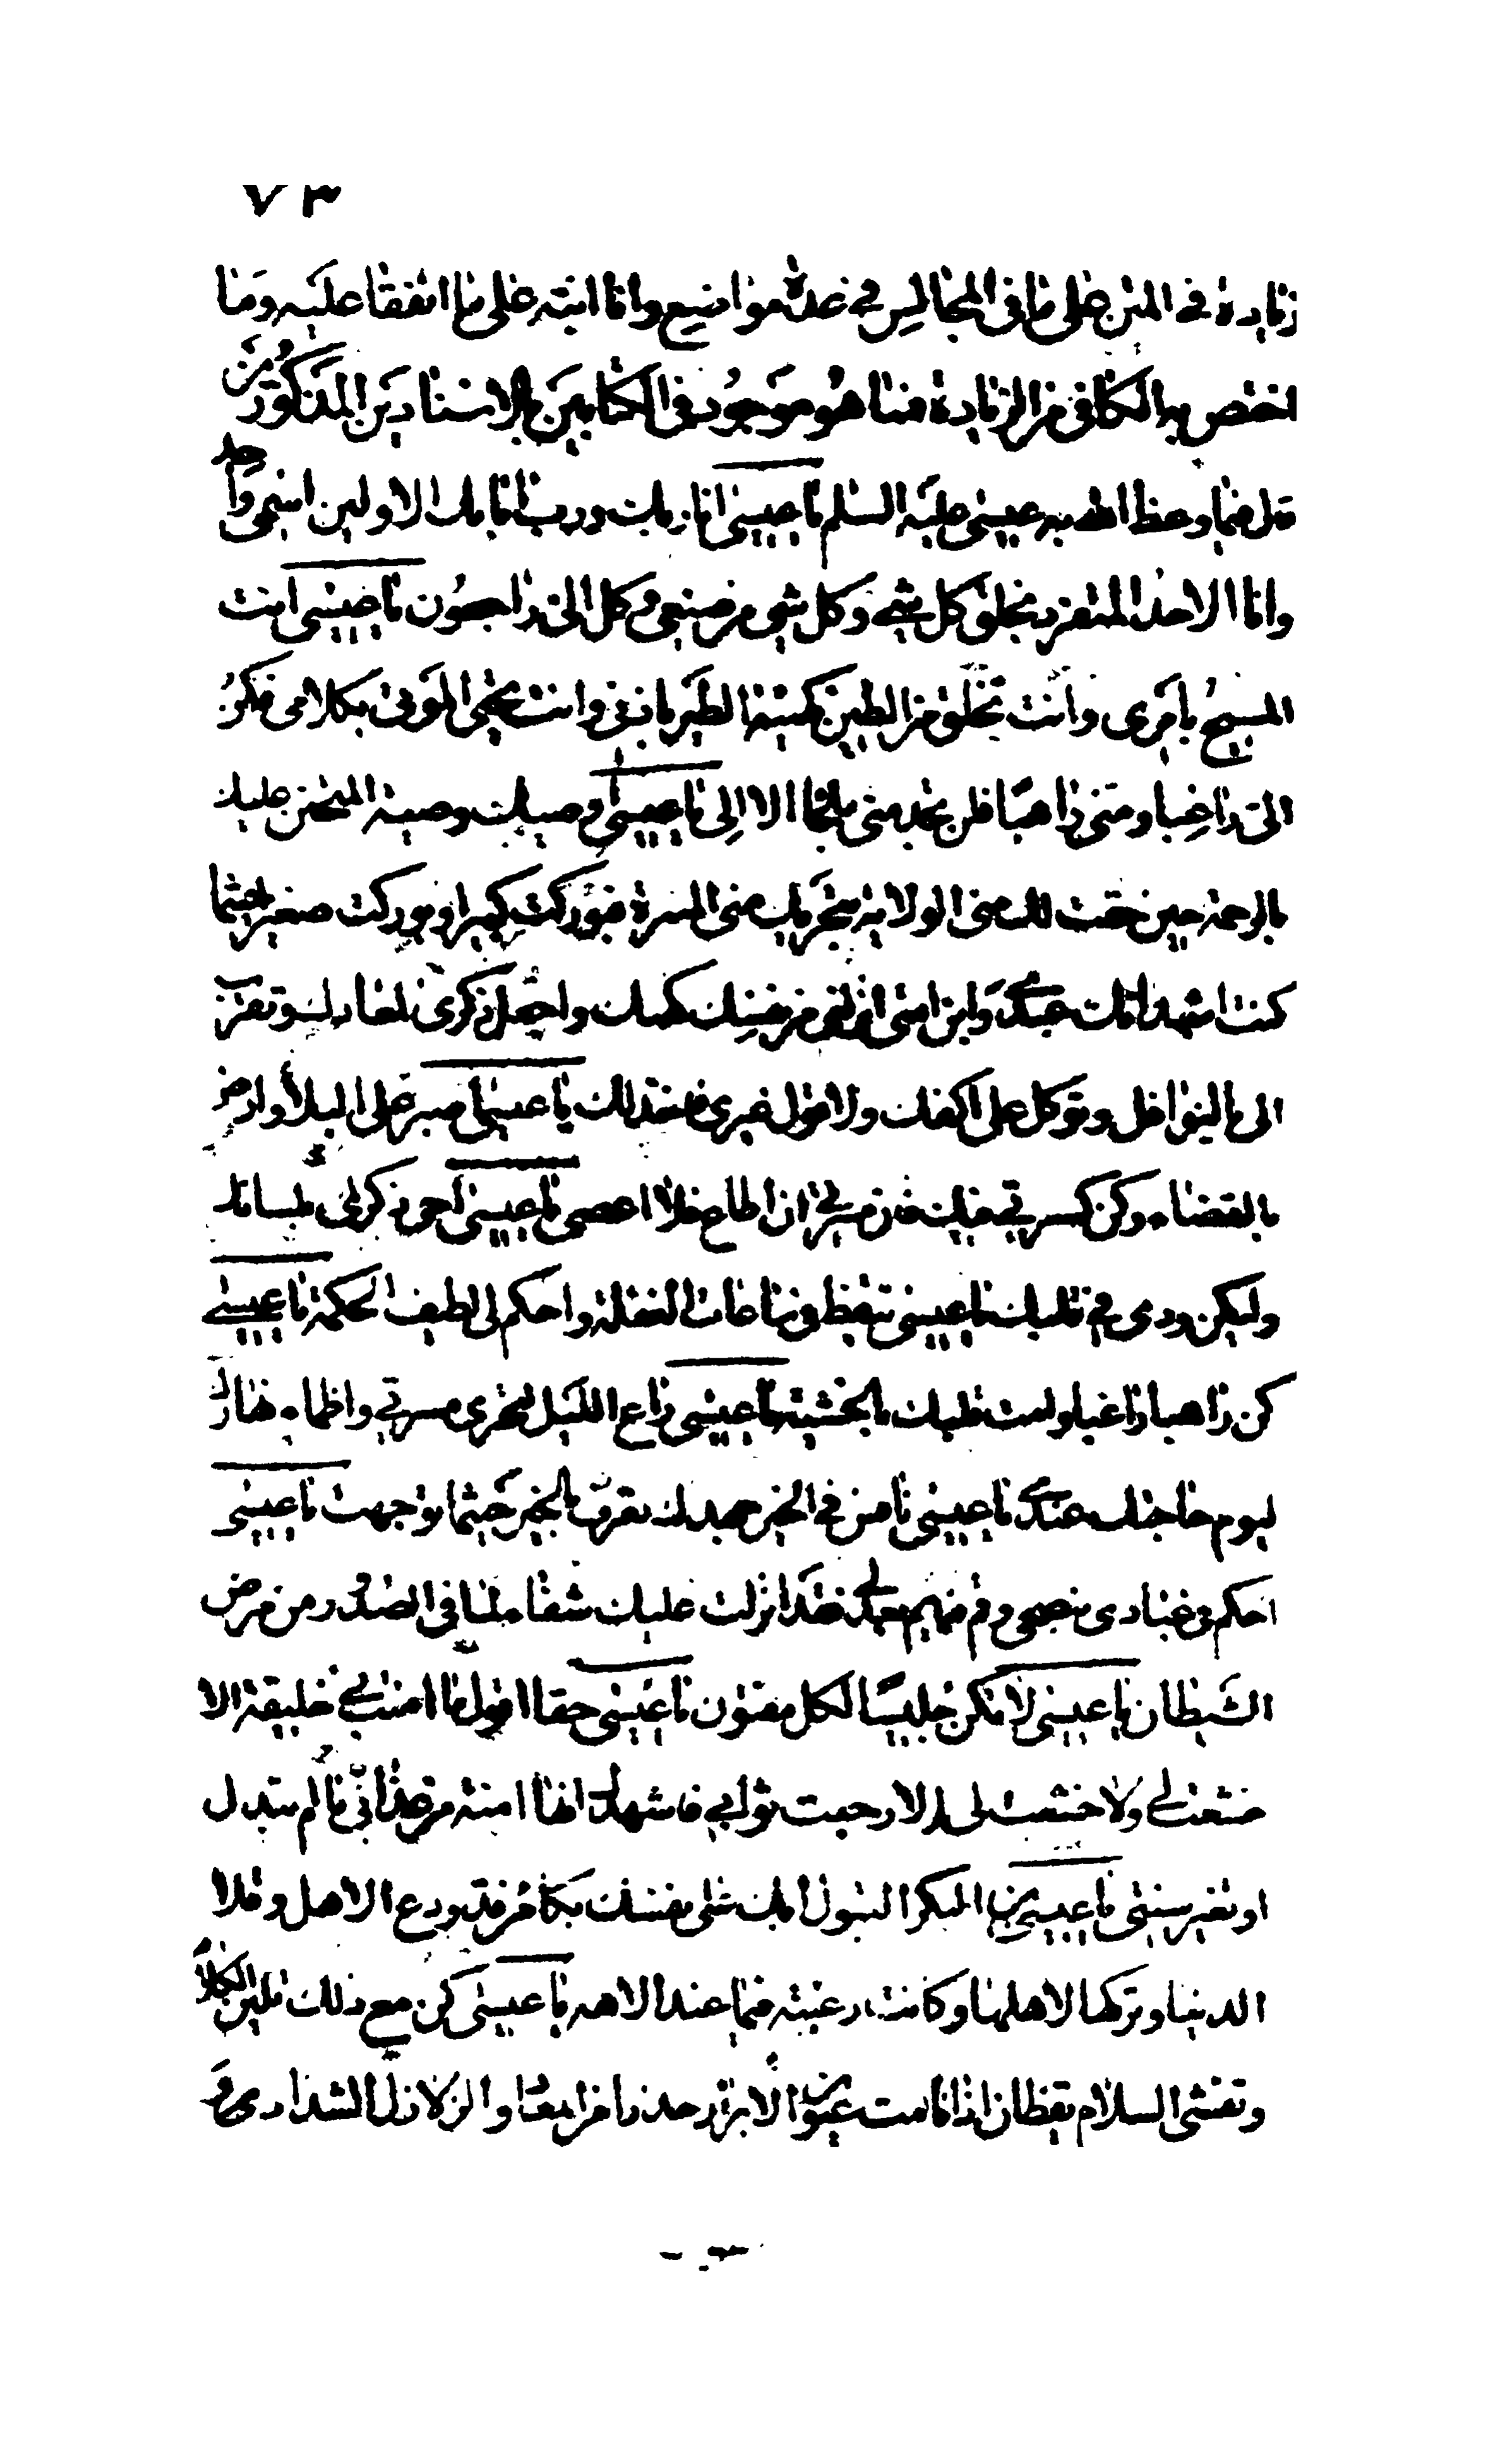 ٧٣
زيادة في المتن على ما في المجالس في عدة مواضع وانا اثبته على ما اتفقا عليه وما
اختص به الكافي من الزيادة فما هو موجود في الكتابين بالاسنادين المذكورين
قال فيما وعظ الله به عيسى عليه السلم يا عيسى انا ربك ورب آبائك الاولين اسمي واحد
وانا الاحد المتفرد بخلق كل شيء وكل شيء من صنعي وكل الي راجعون يا عيسى انت
المسيح بامري وانت تخلق من الطين كهيئة الطير باذني وانت تحيي الموتى بكلامي فكن
الي راغبا ومني راهبا فلن تجد مني ملجأ الا الي يا عيسى اوصيك وصية المتحنن عليك
بالرحمة حين حقت لك مني الولاية بتحريك مني المسرة فبوركت كبيرا وبوركت صغيرا حيثما
كنت اشهد انك عبدي وابن امتي انزلني من نفسك كهمك واجعل ذكري لمعادك وتقرب
الي بالنوافل وتوكل علي اكفك ولا تول غيري فاخذلك يا عيسى اصبر على البلاء وارض
بالقضاء وكن كمسرتي فيك فان مسرتي ان اطاع فلا اعصى يا عيسى احي ذكري بلسانك
وليكن ودي في قلبك يا عيسى تيقظ في ساعات الغفلة واحكم لي لطيف الحكمة يا عيسى
كن راهبا راغبا وامت قلبك بالخشية يا عيسى راع الليل لتحري مسرتي واظمأ نهارك
ليوم حاجتك عندي يا عيسى نافس في الخير جهدك تعرف بالخير حيثما توجهت يا عيسى
احكم في عبادي بنصحي وقم فيهم بعدلي فقد انزلت عليك شفاء لما في الصدور من مرض
الشيطان يا عيسى لا تكن جليسا لكل مفتون يا عيسى حقا اقول ما امنت بي خليقة الا
خشعت لي ولا خشعت لي الا رجت ثوابي فاشهدك انها امنة من عذابي ما لم تبدل
او تغير سنتي يا عيسى بن البكر البتول ابك على نفسك بكاء من قد ودع الاهل وقلا
الدنيا وتركها لاهلها وكانت رغبته فيما عند الاهه يا عيسى كن مع ذلك تلين الكلام
وتفشي السلام يقظان اذا نامت عيون الابرار حذرا من المعاد والزلازل الشداد